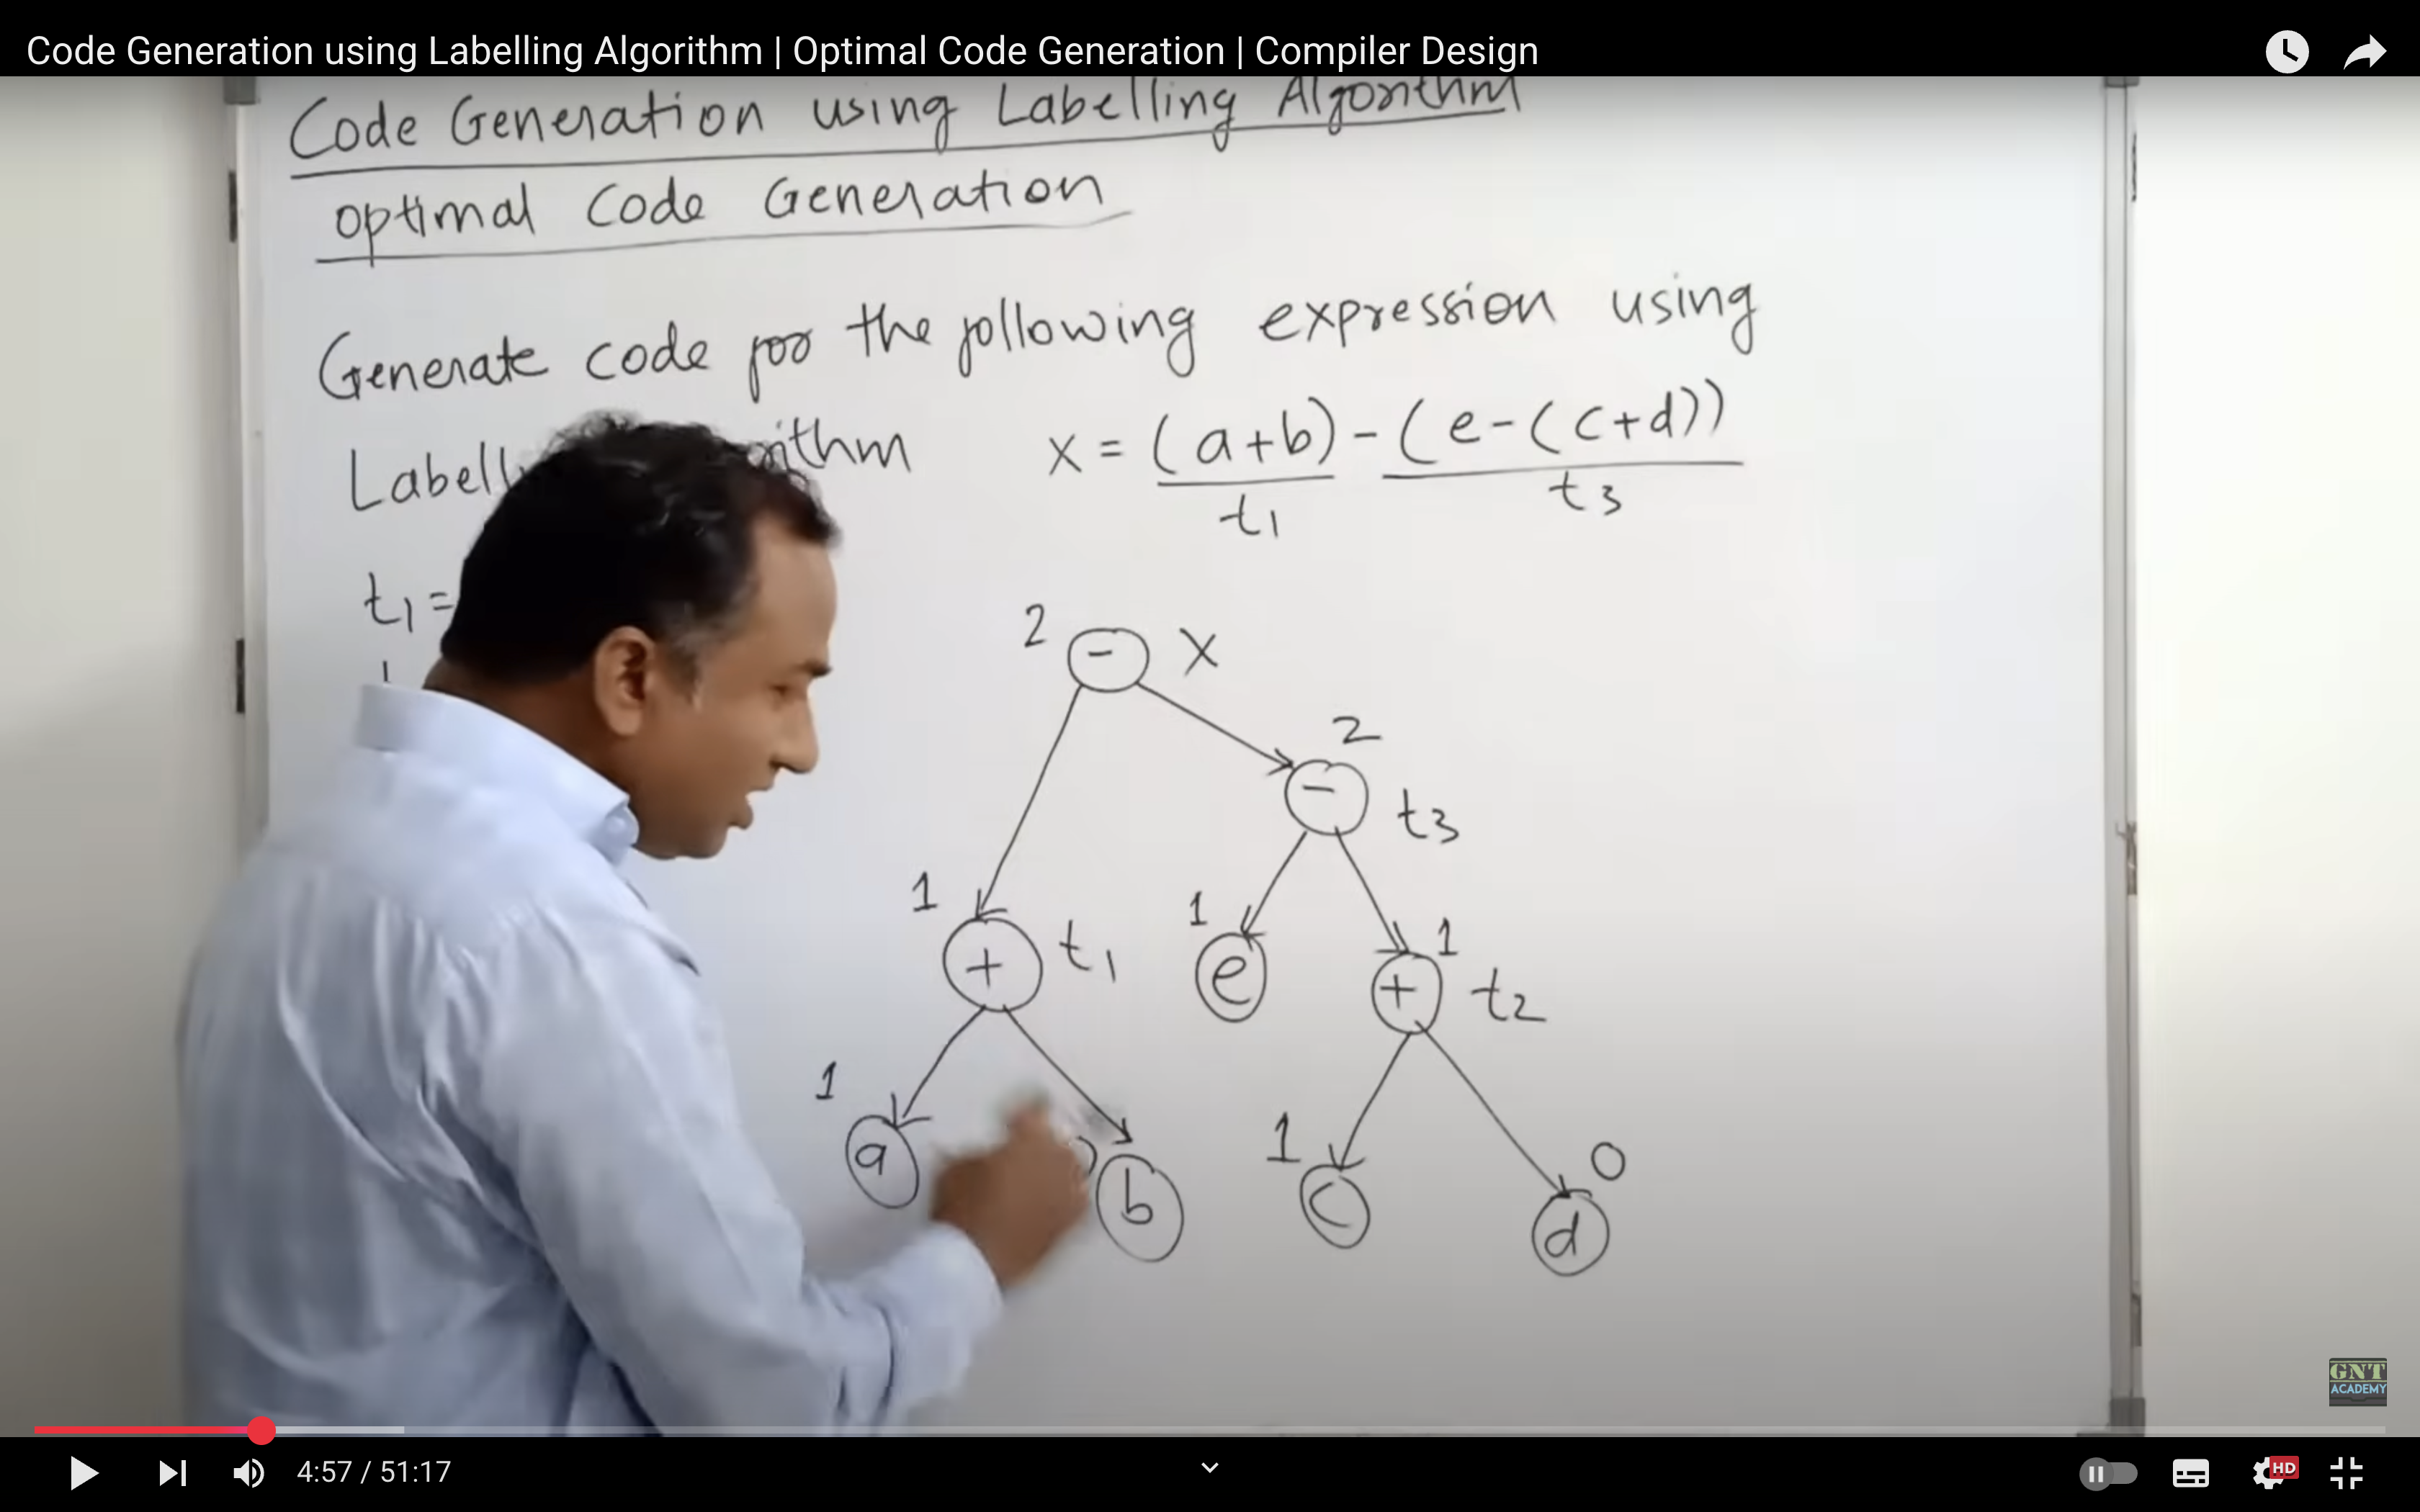 Code Generation using Labelling Algorithm | Optimal Code Generation | Compiler Design
Code Generation using Labelling Algorithm
optimal Code Generation
Generate code for the following expression using
x = (a+b) - (e-(c+d))
t1 t3
t1 =
2 - x
2
- t3
1 1 1
+ t1 e + t2
1 1 0
a b c d
GNT
ACADEMY
4:57 / 51:17
HD